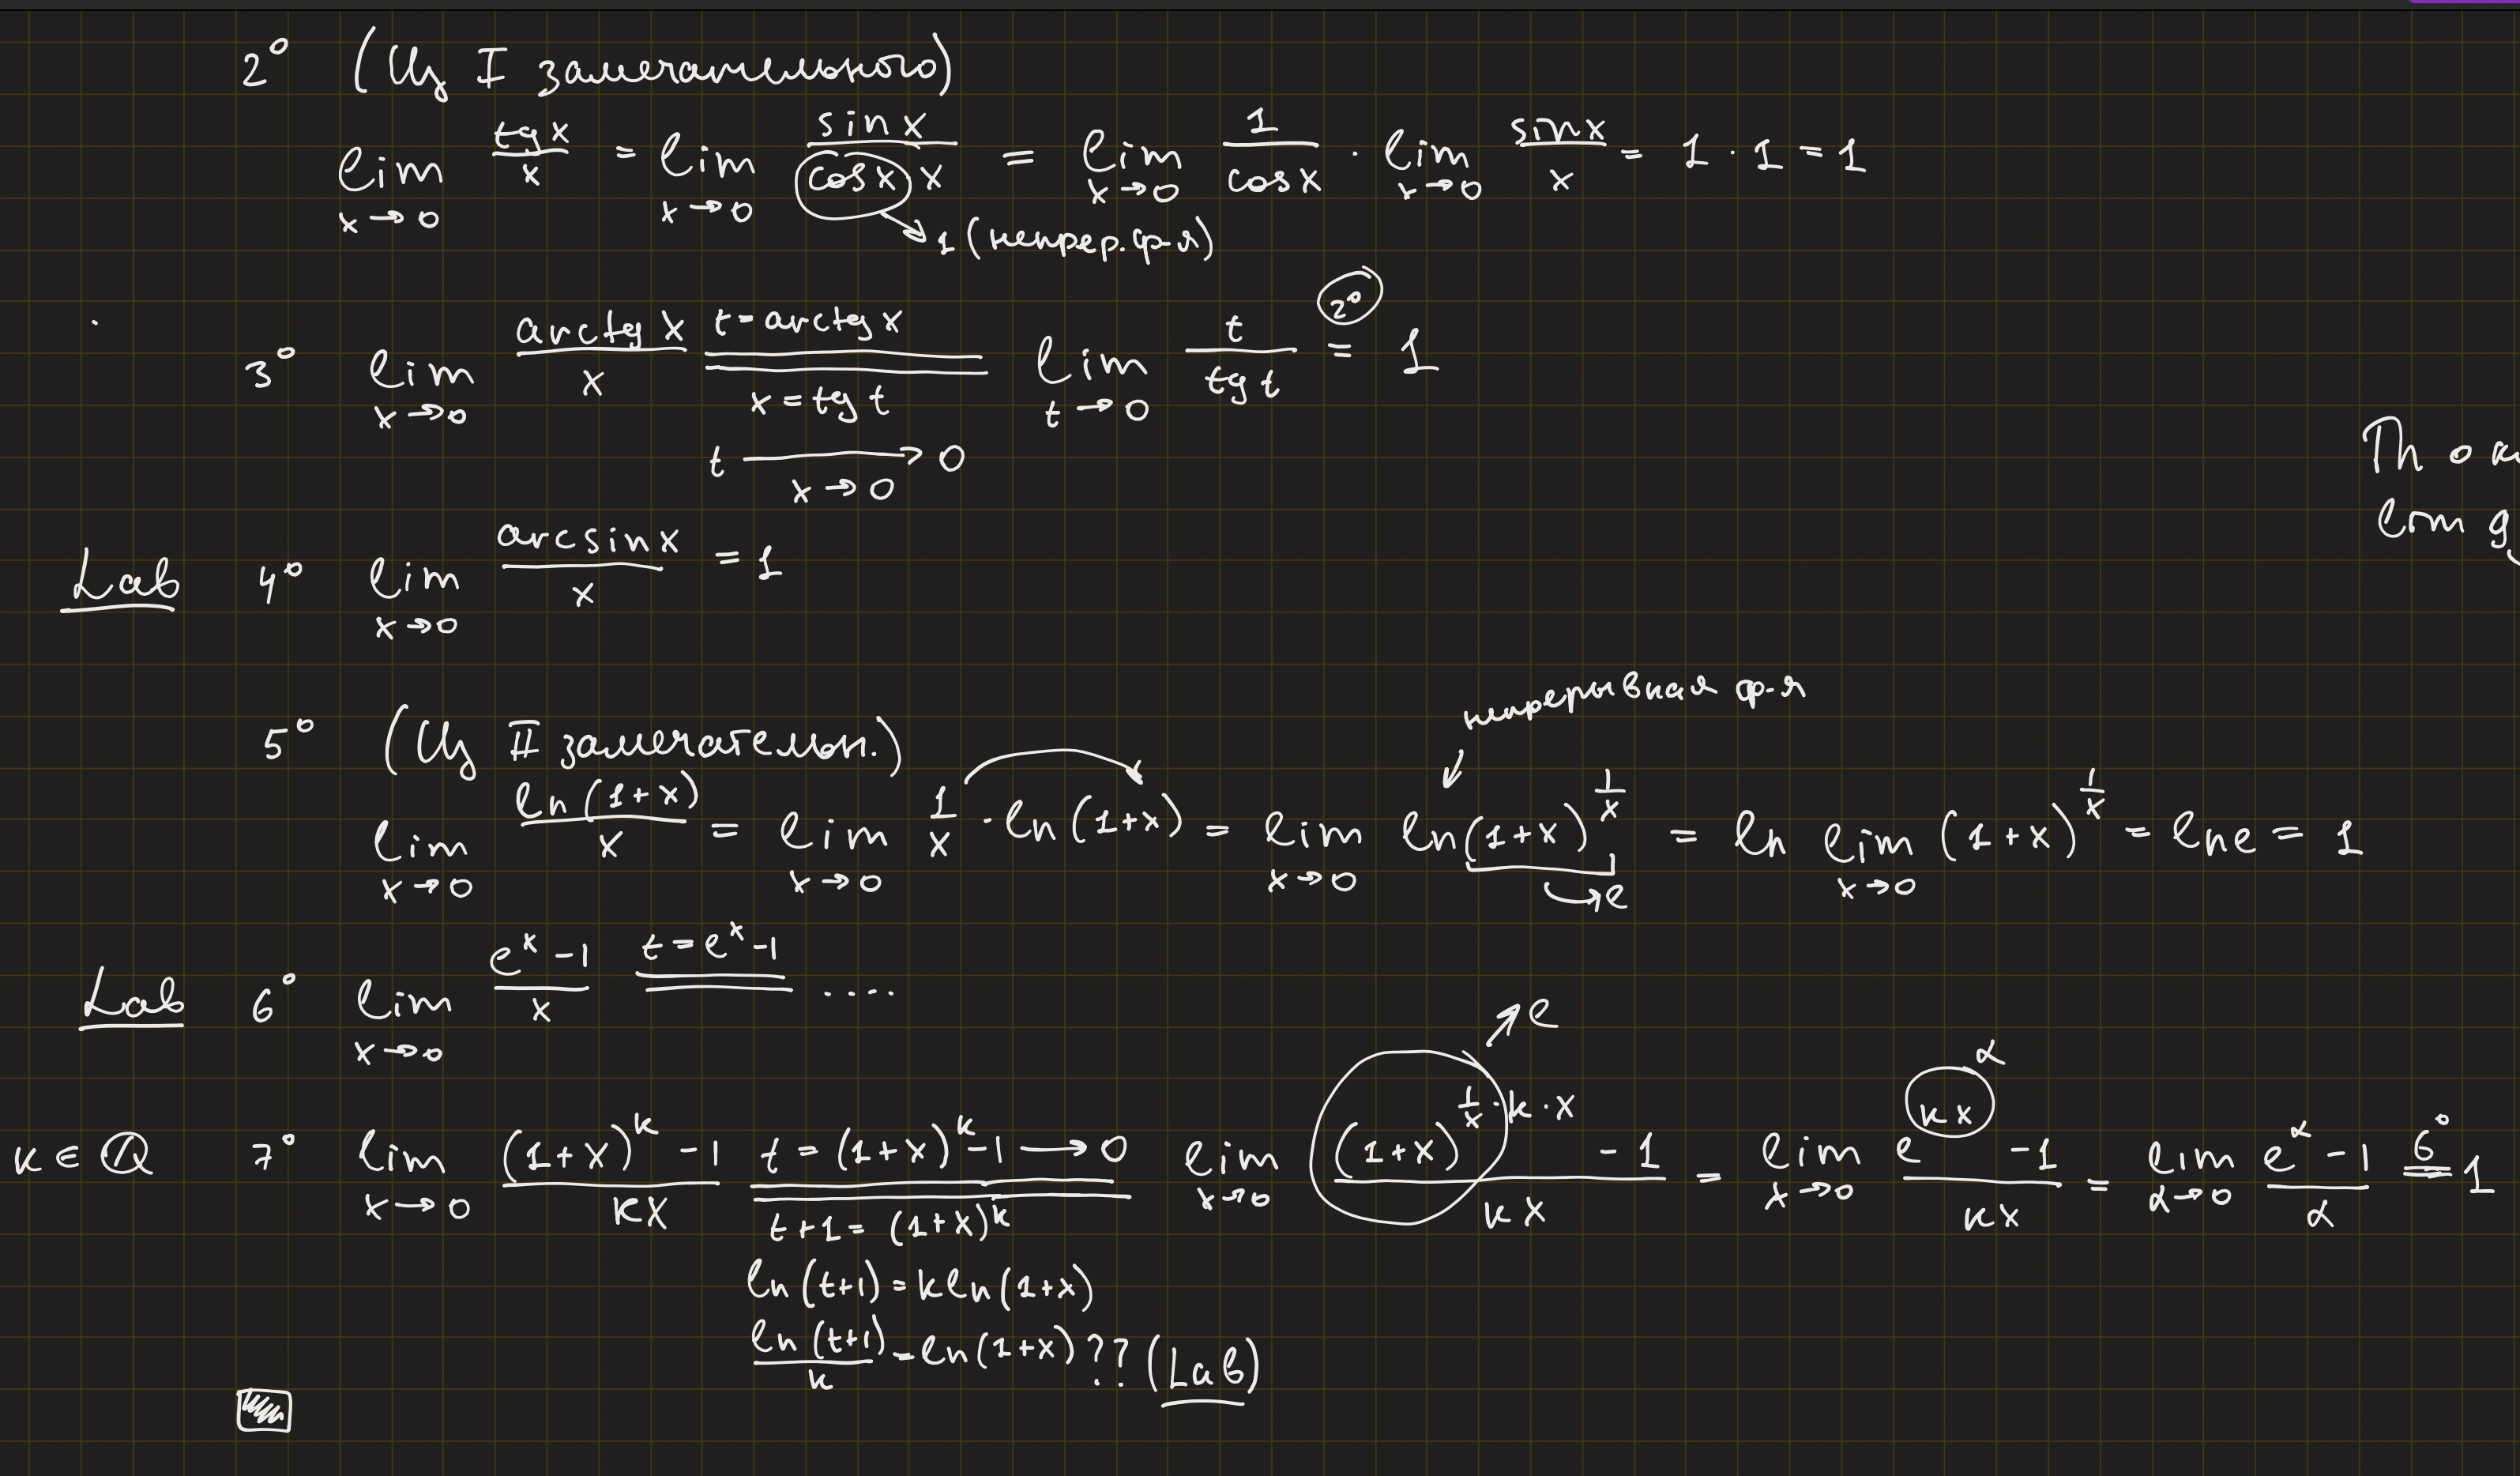 2° (Из I замечательного)
lim x→0 tg x / x = lim x→0 sin x / (cos x) x = lim x→0 1 / cos x · lim x→0 sin x / x = 1 · 1 = 1
→ 1 (непрер. ф-я)
3° lim x→0 arctg x / x = (t = arctg x, x = tg t) lim t→0 t / tg t = (2°) 1
t → 0, x→0
Th о
Lab 4° lim x→0 arcsin x / x = 1
непрерывная ф-я
5° (Из II замечательн.)
lim x→0 ln(1+x) / x = lim x→0 1/x · ln(1+x) = lim x→0 ln(1+x)^(1/x) = ln lim x→0 (1+x)^(1/x) = ln e = 1
→ e
Lab 6° lim x→0 e^x - 1 / x = (t = e^x - 1) ....
→ e
α
k ∈ Q 7° lim x→0 (1+x)^k - 1 / kx = (t = (1+x)^k - 1 → 0, t+1 = (1+x)^k) lim x→0 (1+x)^(1/x · k · x) - 1 / kx = lim x→0 e^(kx) - 1 / kx = lim α→0 e^α - 1 / α = (6°) 1
ln(t+1) = k ln(1+x)
ln(t+1) / k = ln(1+x) ?? (Lab)